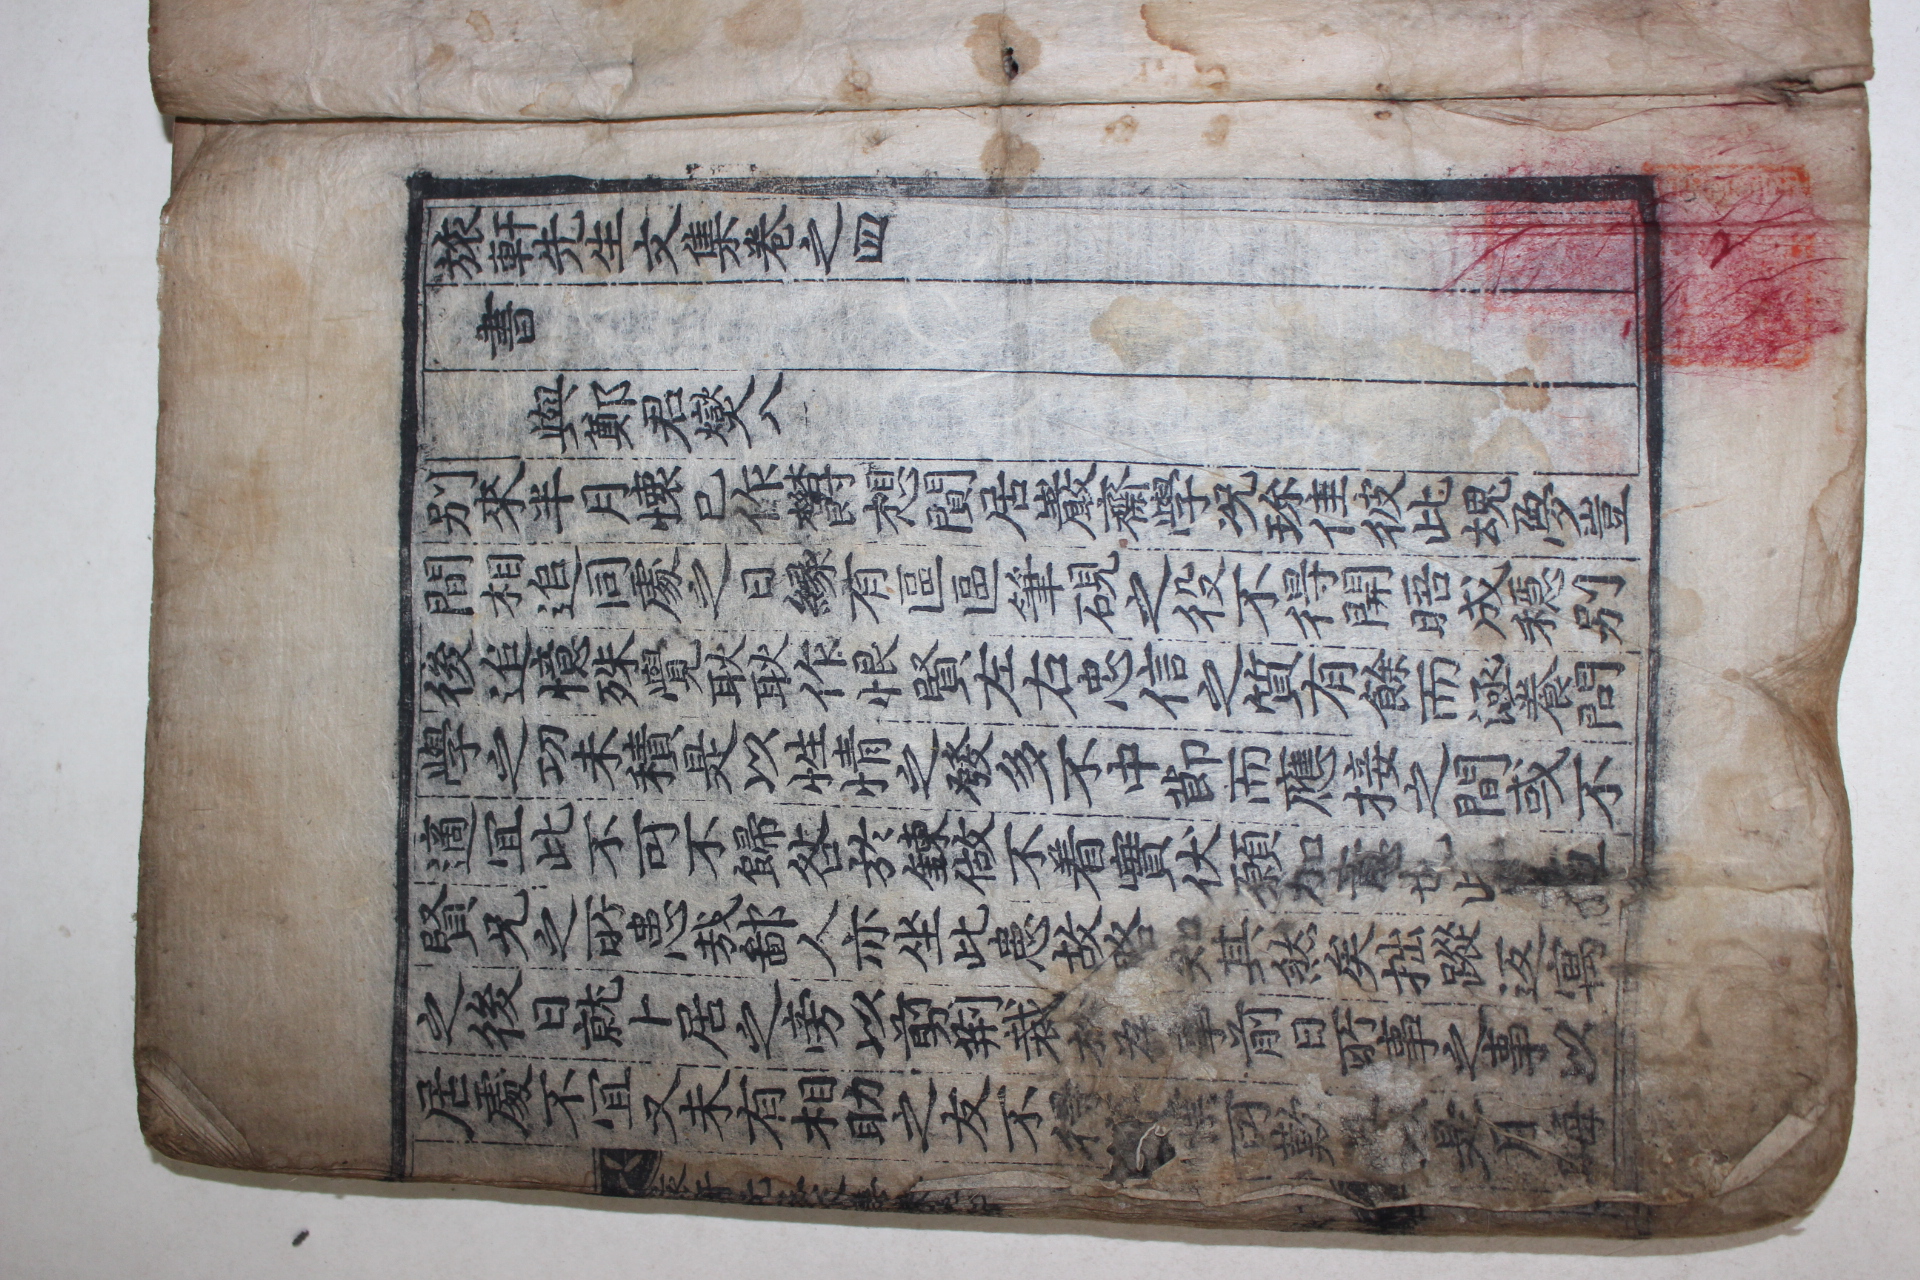 旅軒先生文集卷之四
書
與鄭君燮八
別來半月懷已作欝想閴居巖齋學况珎佳彼此魂夢豈
間相追同處之日緣有區區筆硯之役不得開晤成穩別
後追憶殊覺耿耿作恨賢左右忠信之質有餘而涵養問
學之功未積是以性情之發多不中節而應接之間或不
適宜此不可不歸咎於鍊做不着實伏願加意也此
賢兄之所患哉鄙人亦坐此患故略知其然矣拙蹤返寓
之後日就卜居之旁以剪荆裁於為事前日所事之事以
居處不宜又未有相助之友不得 業可歎 是月晦